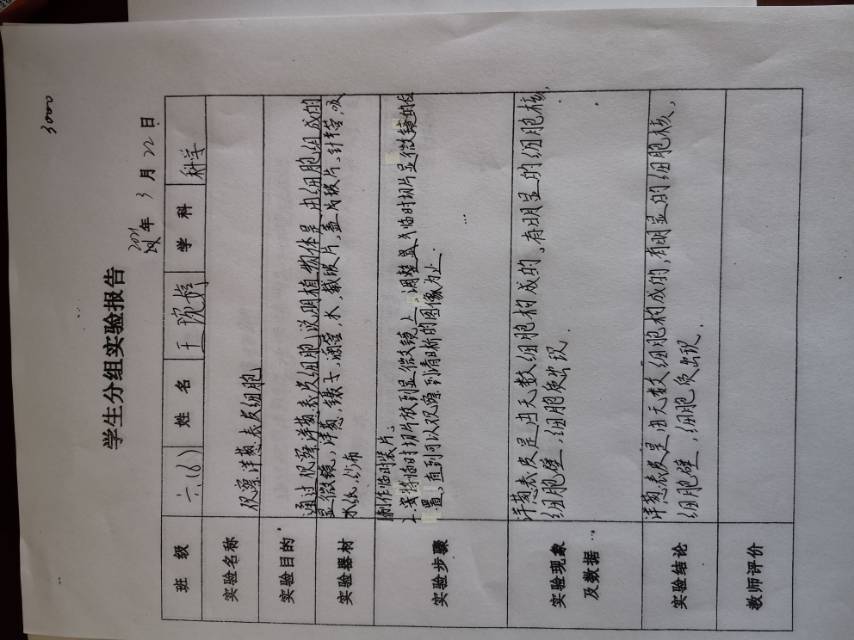 3000
学生分组实验报告
2021年 3 月 22 日
班 级 六(6) 姓 名 王婉婷 学 科 科学
实验名称 观察洋葱表皮细胞
实验目的 通过观察洋葱表皮细胞,说明植物体是由细胞组成的
实验器材 显微镜,洋葱,镊子,滴管,水,载玻片,盖玻片,吸
水纸,纱布
实验步骤 制作临时装片。
将临时切片放到显微镜上,调整显微镜的
置,直到可以观察到清晰的图像为止.
实验现象 洋葱表皮是由无数细胞构成的,有明显的细胞核,
及数据 细胞壁,细胞质出现.
实验结论 洋葱表皮是由无数细胞构成的,有明显的细胞核,
细胞壁,细胞质出现.
教师评价